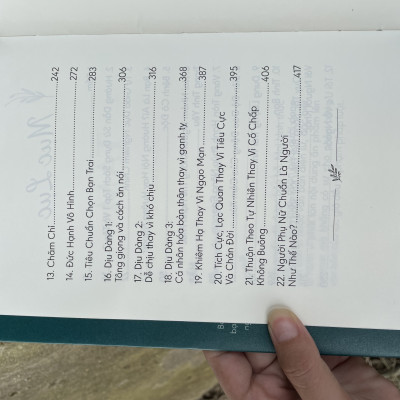 13. Chăm Chỉ ........ 242
14. Đức Hạnh Vô Hình ........ 272
15. Tiêu Chuẩn Chọn Bạn Trai ........ 283
16. Dịu Dàng 1:
Tông giọng và cách ăn nói ........ 306
17. Dịu Dàng 2:
Dễ chịu thay vì khó chịu ........ 316
18. Dịu Dàng 3:
Cá nhân hóa bản thân thay vì ganh tỵ ........ 368
19. Khiêm Hạ Thay Vì Ngạo Mạn ........ 387
20. Tích Cực, Lạc Quan Thay Vì Tiêu Cực
Và Chán Đời ........ 395
21. Thuận Theo Tự Nhiên Thay Vì Cố Chấp
Không Buông ........ 406
22. Người Phụ Nữ Chuẩn Là Người
Như Thế Nào? ........ 417